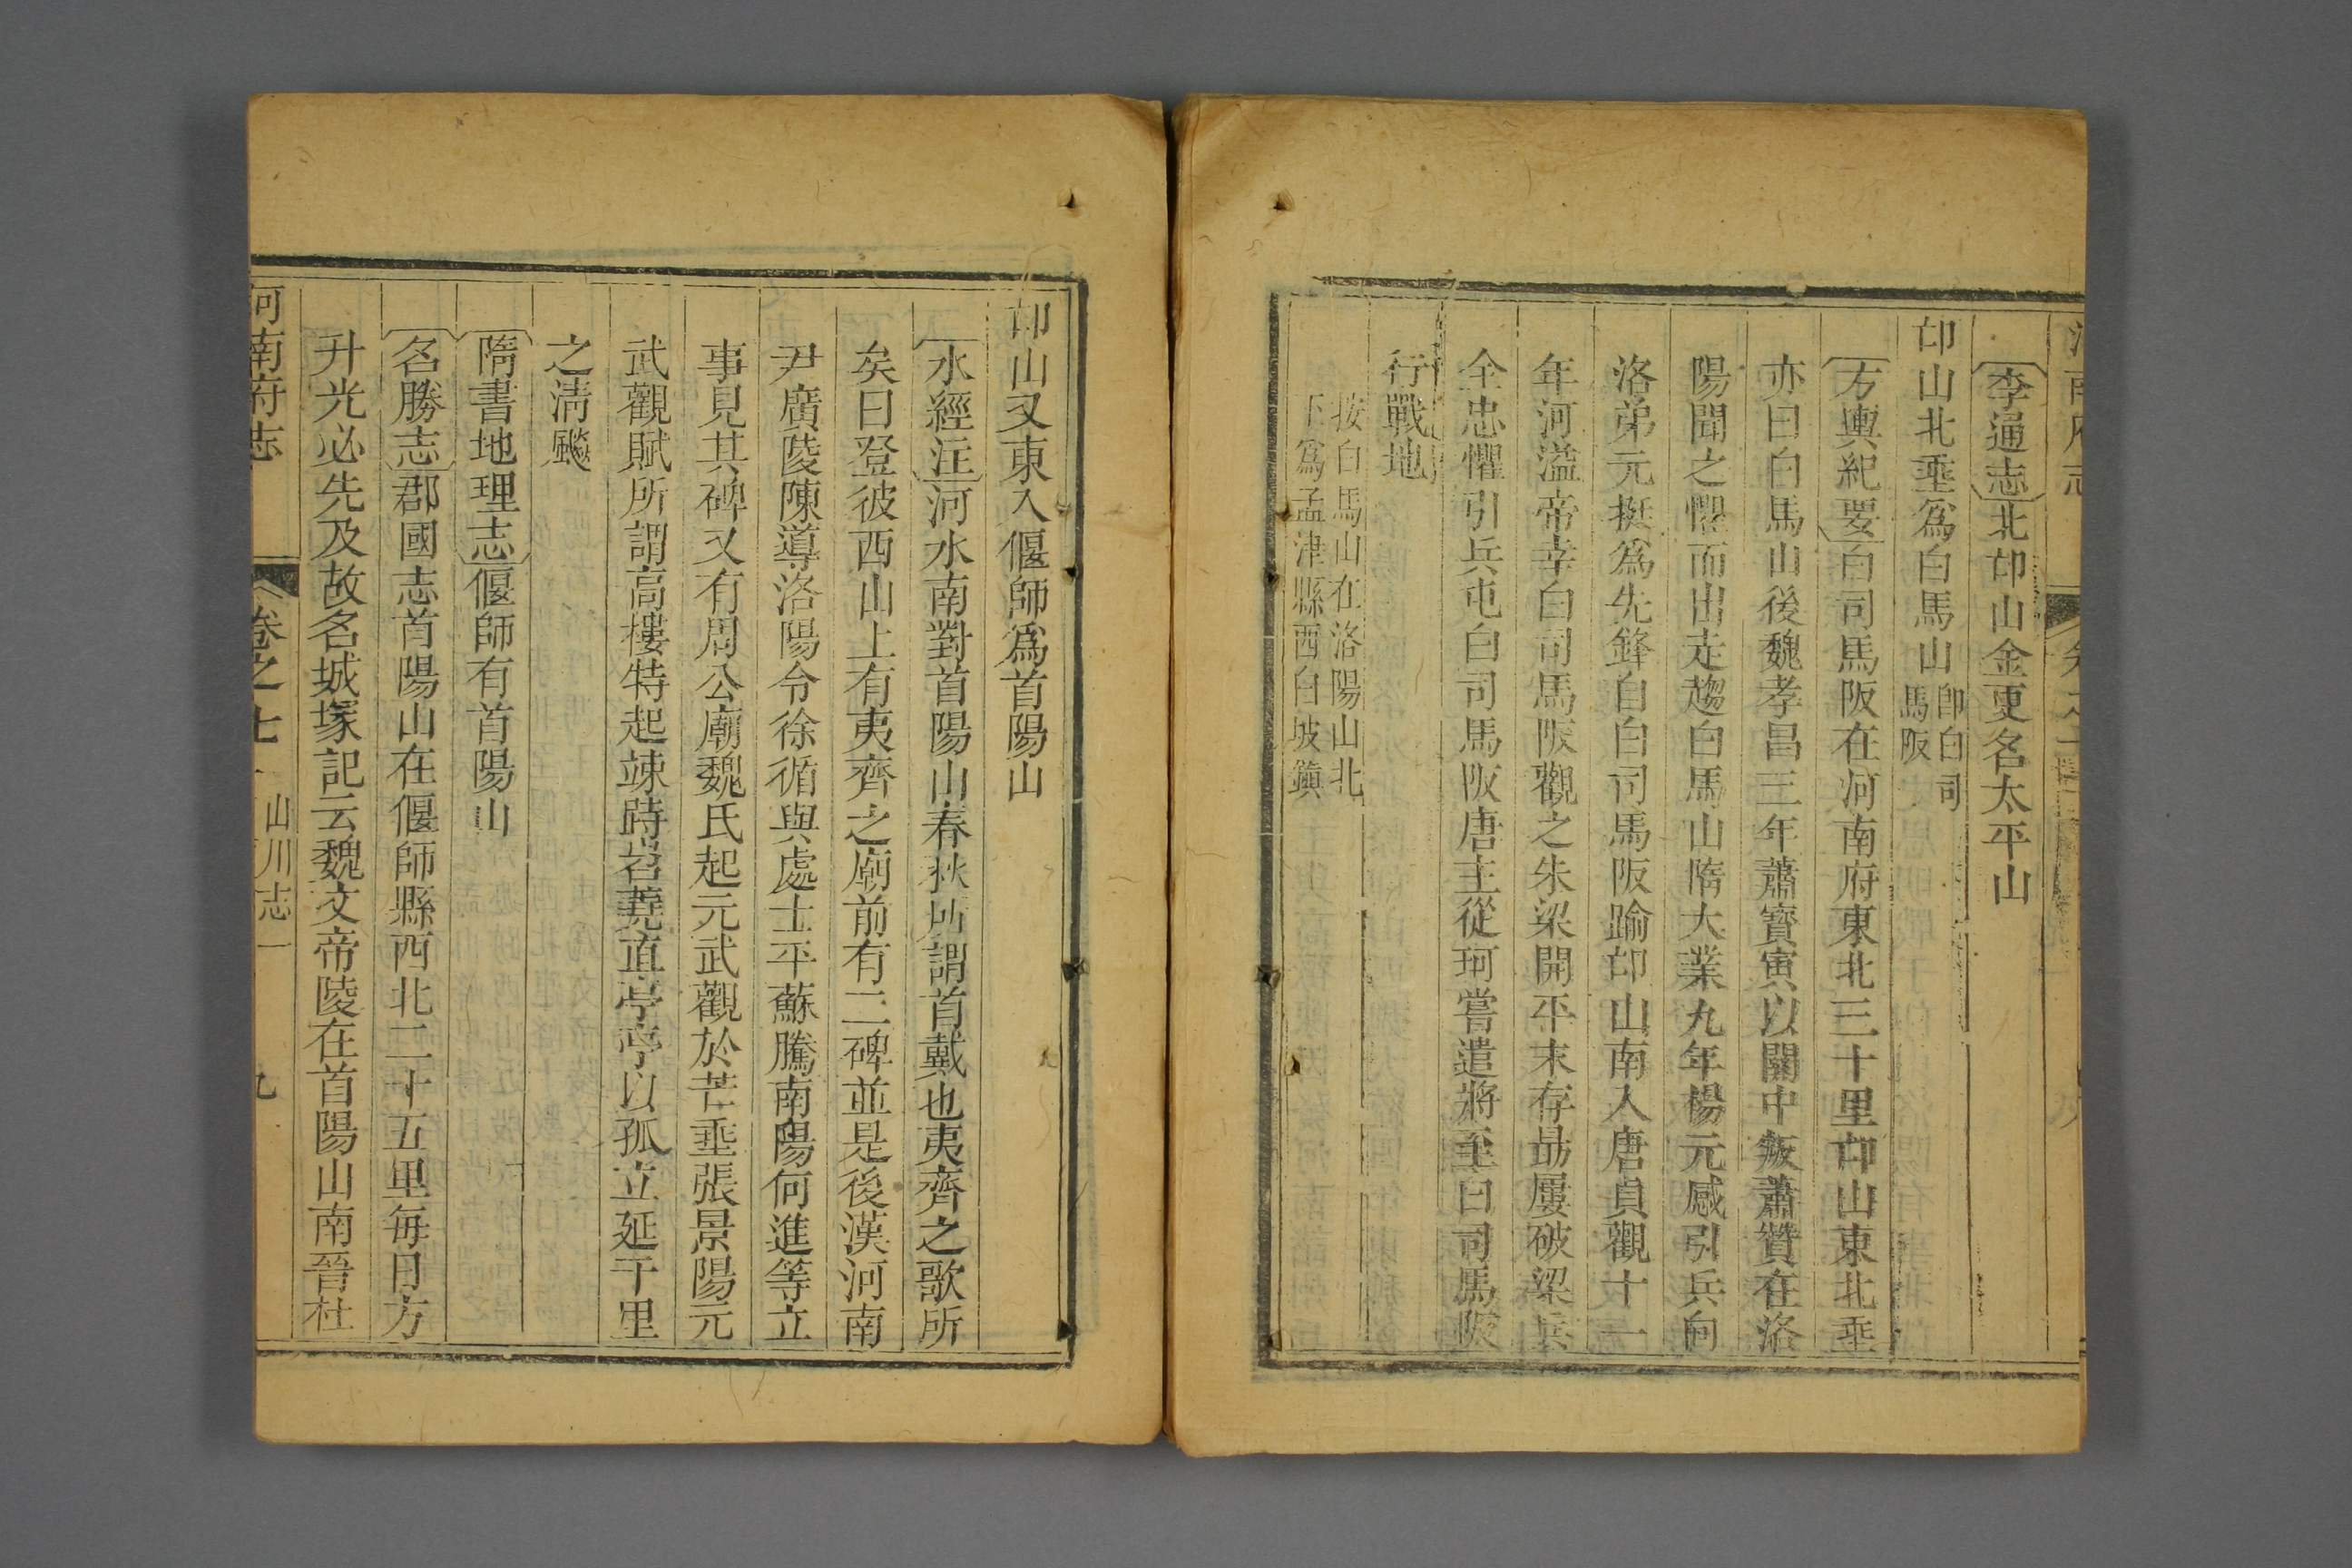 李通志北邙山金更名太平山
邙山北垂爲白馬山卽白司馬阪
方輿紀要白司馬阪在河南府東北三十里邙山東北垂
亦曰白馬山後魏孝昌三年蕭寶寅以關中叛蕭贊在洛
陽聞之懼而出走趨白馬山隋大業九年楊元感引兵向
洛弟元挺爲先鋒自白司馬阪踰邙山南入唐貞觀十一
年河溢帝幸白司馬阪觀之朱梁開平末存勗屢破梁兵
全忠懼引兵屯白司馬阪唐主從珂嘗遣將至白司馬阪
行戰地
按白馬山在洛陽山北
下爲孟津縣西白坡鎭
邙山又東入偃師爲首陽山
水經注河水南對首陽山春秋所謂首戴也夷齊之歌所
矣曰登彼西山上有夷齊之廟前有二碑並是後漢河南
尹廣陵陳導洛陽令徐循與處士平蘇騰南陽何進等立
事見其碑又有周公廟魏氏起元武觀於芒垂張景陽元
武觀賦所謂高樓特起竦跱岧嶤直亭亭以孤立延千里
之淸飇
隋書地理志偃師有首陽山
名勝志郡國志首陽山在偃師縣西北二十五里每日方
升光必先及故名城塚記云魏文帝陵在首陽山南晉杜
河南府志 卷之七 山川志一 九